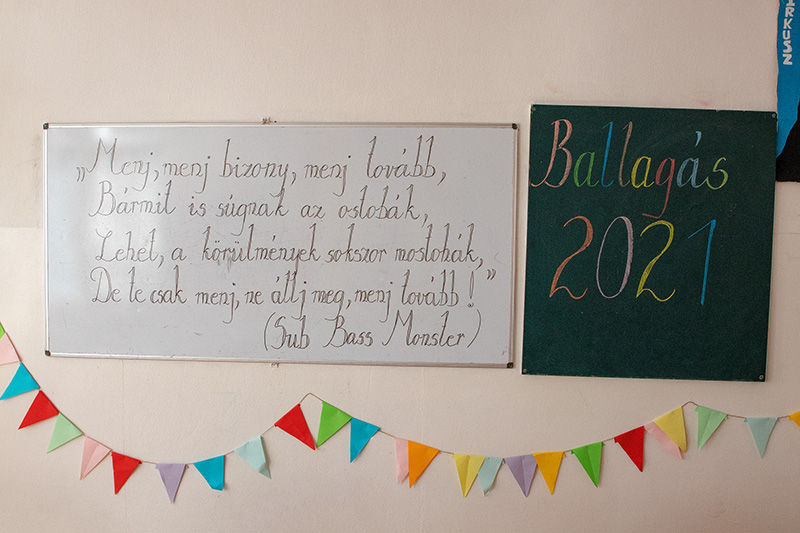 „Menj, menj bizony, menj tovább,
Bármit is súgnak az ostobák,
Lehet, a körülmények sokszor mostohák,
De te csak menj, ne állj meg, menj tovább!”
(Sub Bass Monster)
Ballagás
2021
IRKUSZ